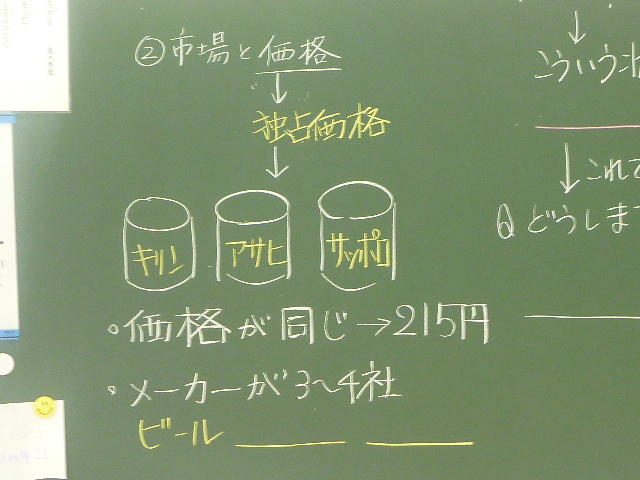 ②市場と価格
↓
独占価格
↓
キリン アサヒ サッポロ
。価格が同じ→215円
。メーカーが3~4社
ビール
↓
こういう
↓これで
Qどうしま